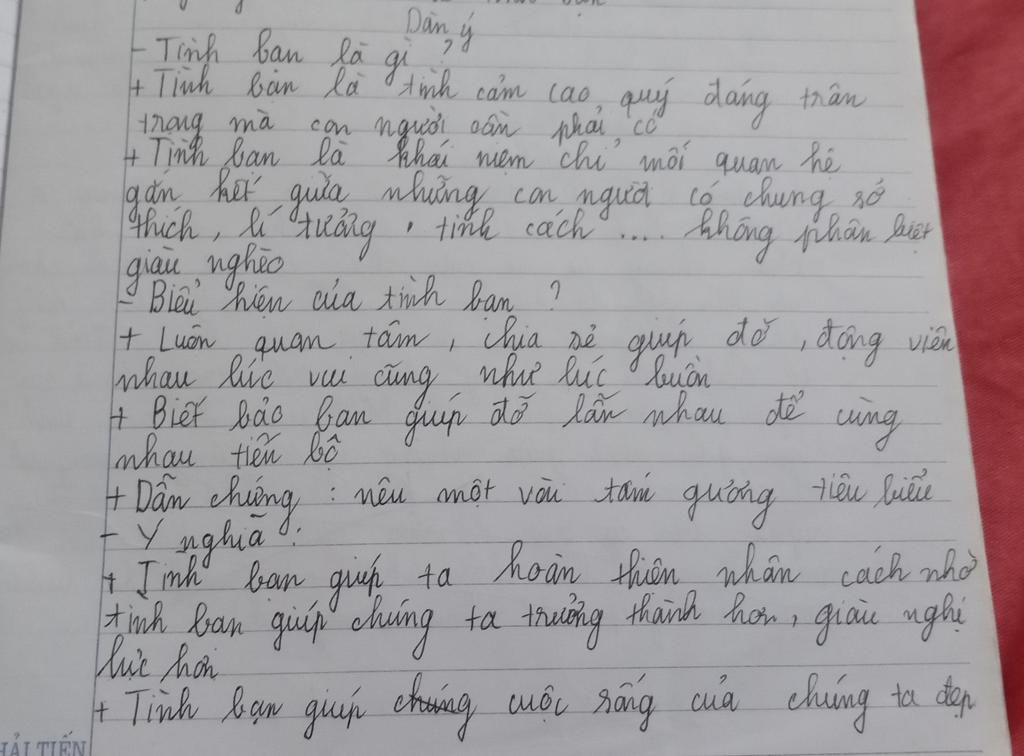 Dàn ý
- Tình bạn là gì ?
+ Tình bạn là tình cảm cao quý đáng trân
trọng mà con người cần phải có
+ Tình bạn là khái niệm chỉ mối quan hệ
gắn kết giữa những con người có chung sở
thích, lí tưởng, tính cách .... không phân biệt
giàu nghèo
- Biểu hiện của tình bạn ?
+ Luôn quan tâm, chia sẻ giúp đỡ, động viên
nhau lúc vui cũng như lúc buồn
+ Biết bảo ban giúp đỡ lẫn nhau để cùng
nhau tiến bộ
+ Dẫn chứng : nêu một vài tấm gương tiêu biểu
- Ý nghĩa :
+ Tình bạn giúp ta hoàn thiện nhân cách nhờ
tình bạn giúp chúng ta trưởng thành hơn, giàu nghị
lực hơn
+ Tình bạn giúp chúng cuộc sống của chúng ta đẹp
HẢI TIẾN